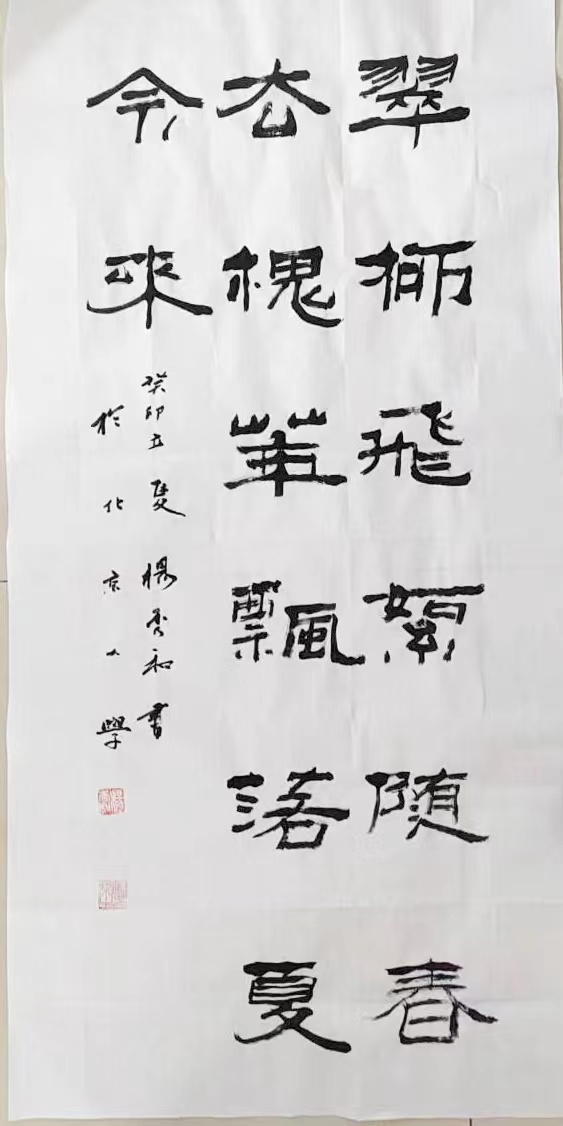 翠柳飛絮随春
去槐華飄落夏
令來
癸卯立夏 楊秀和書
於北京大學